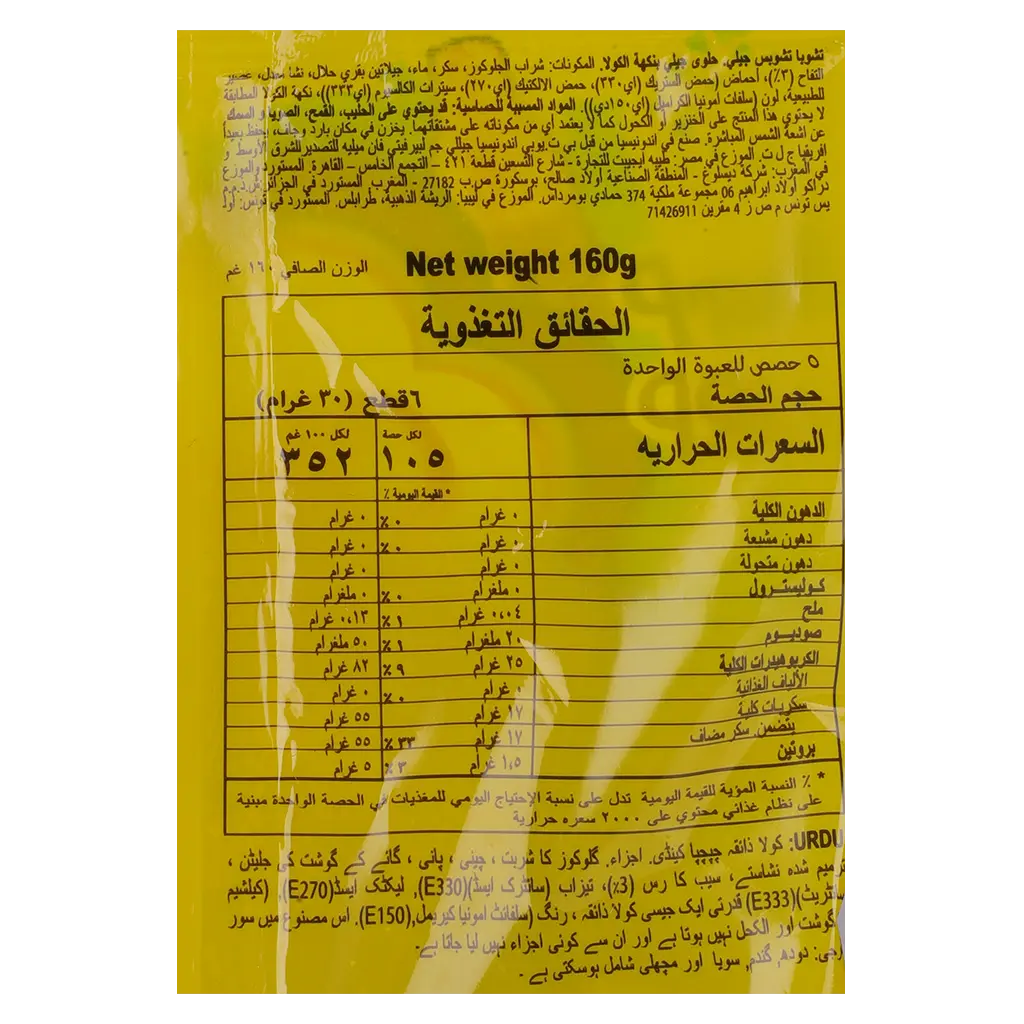 تشوبا تشوبس جيلي. حلوى جيلي بنكهة الكولا. المكونات: شراب الجلوكوز، سكر، ماء، جيلاتين بقري حلال، نشا معدل، عصير
التفاح (٣٪)، أحماض (حمض الستريك (إي٣٣٠)، حمض الالكتيك (إي٢٧٠)، سيترات الكالسيوم (إي٣٣٣))، نكهة الكولا المطابقة
للطبيعية، لون (سلفات أمونيا الكراميل (إي١٥٠دي)). المواد المسببة للحساسية: قد يحتوي على الحليب، القمح، الصويا و السمك
لا يحتوي هذا المنتج على الخنزير أو الكحول كما لا يعتمد أي من مكوناته على مشتقاتهما. يخزن في مكان بارد وجاف، يحفظ بعيداً
عن أشعة الشمس المباشرة. صنع في اندونيسيا من قبل بي تي. يوبي اندونيسيا جيللي جم لبيرفيتي فان ميليه للتصدير للشرق الأوسط و
افريقيا ج ل ت. الموزع في مصر: طيبه ايجيبت للتجارة - شارع التسعين قطعة ٤٢١ – التجمع الخامس – القاهرة. المستورد والموزع
في المغرب: شركة ديسلوغ - المنطقة الصناعية أولاد صالح، بوسكورة ص.ب 27182 - المغرب. المستورد في الجزائر ش.ذ.م.م
دراكو أولاد ابراهيم 06 مجموعة ملكية 374 حمادي بومرداس. الموزع في ليبيا: الريشة الذهبية، طرابلس. المستورد في تونس: أول
يس تونس م ص ز 4 مقرين 71426911
Net weight 160g الوزن الصافي ١٦٠ غم
الحقائق التغذوية
٥ حصص للعبوة الواحدة
حجم الحصة ٦قطع (٣٠ غرام)
السعرات الحراريه لكل حصة ١٠٥ لكل ١٠٠ غم ٣٥٢
* القيمة اليومية ٪
الدهون الكلية ٠ غرام ٠٪ ٠ غرام
دهون مشبعة ٠ غرام ٠٪ ٠ غرام
دهون متحولة ٠ غرام ٠ غرام
كوليسترول ٠ ملغرام ٠٪ ٠ ملغرام
ملح ٠,٠٤ غرام ١٪ ٠,١٣ غرام
صوديوم ٢٠ ملغرام ١٪ ٥٠ ملغرام
الكربوهيدرات الكلية ٢٥ غرام ٩٪ ٨٢ غرام
الألياف الغذائية ٠ غرام ٠٪ ٠ غرام
سكريات كلية ١٧ غرام ٥٥ غرام
يتضمن سكر مضاف ١٧ غرام ٣٣٪ ٥٥ غرام
بروتين ١,٥ غرام ٣٪ ٥ غرام
* ٪ النسبة المؤية للقيمة اليومية تدل على نسبة الإحتياج اليومي للمغذيات في الحصة الواحدة مبنية
على نظام غذائي محتوي على ٢٠٠٠ سعره حرارية
URDU: کولا ذائقہ چپچپا کینڈی. اجزاء. گلوکوز کا شربت ، چینی ، پانی ، گائے کے گوشت کی جلیٹن ،
ترمیم شدہ نشاستے، سیب کا رس (3٪)، تیزاب (سائٹرک ایسڈ)(E330), لیکٹک ایسڈ(E270), (کیلشیم
سائٹریٹ)(E333) قدرتی ایک جیسی کولا ذائقہ ، رنگ (سلفائٹ امونیا کیریمل,(E150). اس مصنوع میں سور
گوشت اور الکحل نہیں ہوتا ہے اور ان سے کوئی اجزاء نہیں لیا جاتا ہے۔
رجی: دودھ, گندم, سویا اور مچھلی شامل ہوسکتی ہے ۔